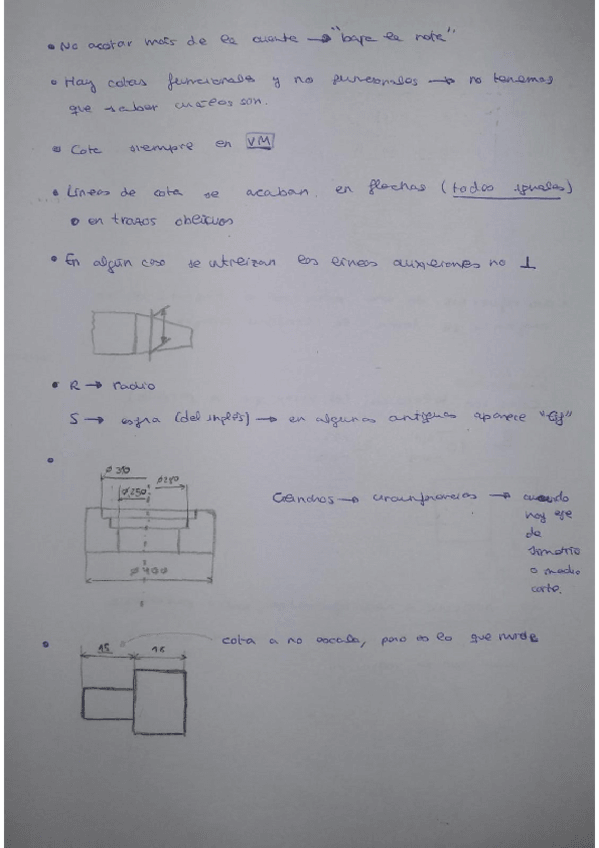 • No acotar más de la cuenta → "baja la nota"
• Hay cotas funcionales y no funcionales → no tenemos
que saber cuáles son.
• Cota siempre en VM
• Líneas de cota se acaban en flechas (todas iguales)
o en trazos oblicuos
• En algún caso se utilizan las líneas auxiliares no ⊥
• R → radio
S → esfera (del inglés) → en algunas antiguas aparece
• Ø 310
Ø 280
Ø 250
Ø 400
→ circunferencias → cuando
hay eje
de
simetría
o medio
corte.
• cota a no escala, pero es lo que mide
15 16